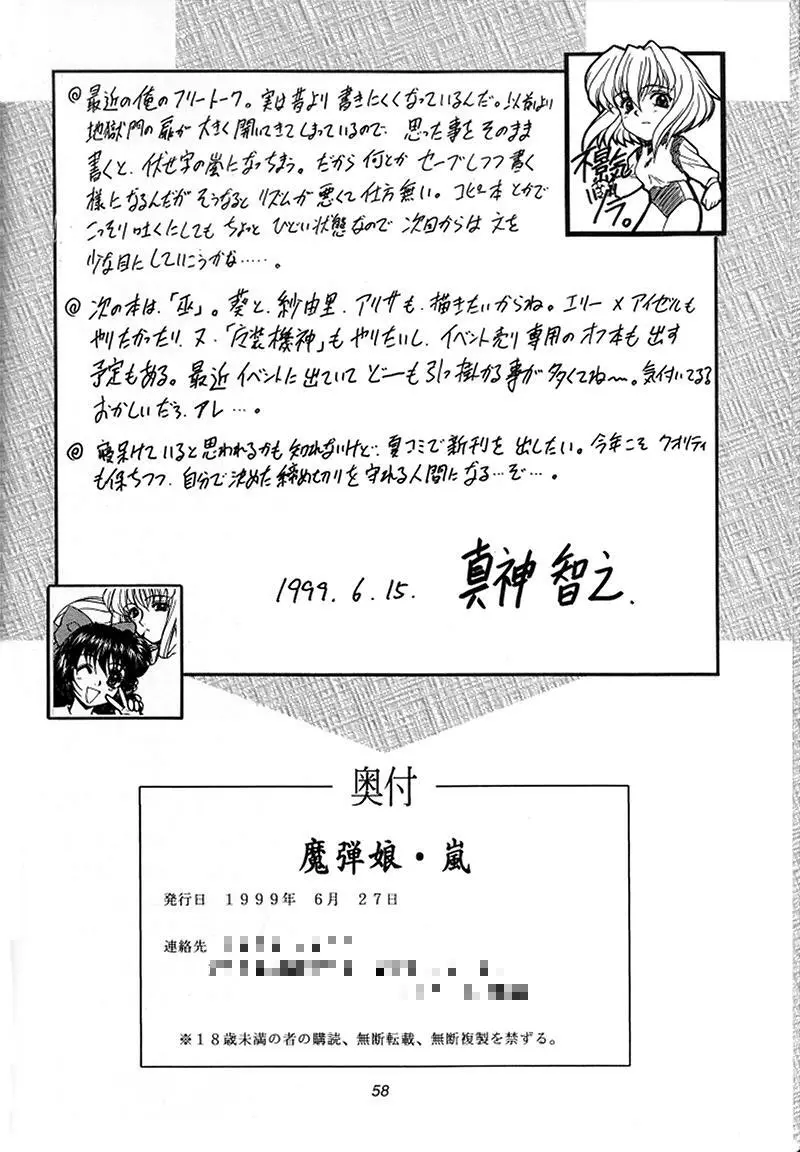 @ 最近の俺のフリートーク。実は昔より書きにくくなっているんだ。以前より
地獄門の扉が大きく開いてきてしまっているので、思った事をそのまま
書くと、伏せ字の嵐になっちまう。だから何とかセーブしつつ書く
様になるんだがそうなるとリズムが悪くて仕方無い。コピー本とかで
こっそり吐くにしてもちょっとひどい状態なので次回からは文を
少な目にしていこうかな……。
@ 次の本は、「巫」。葵と、紗由里、アリサも、描きたいからね。エリー×アイゼルも
やりたかったり、ヌ、「装機神」もやりたいし、イベント売り専用のオフ本も出す
予定もある。最近イベントに出ていてどーも引っ掛かる事が多くてね〜。気付いてるる
おかしいだろ、アレ…。
@ 寝呆けていると思われるかも知れないけど、夏コミで新刊を出したい。今年こそクオリティ
も保ちつつ、自分で決めた締め切りを守れる人間になる…ぞ…。
1999.6.15. 真神智之.
奥付
魔弾娘・嵐
発行日 1999年 6月 27日
連絡先
※18歳未満の者の購読、無断転載、無断複製を禁ずる。
58